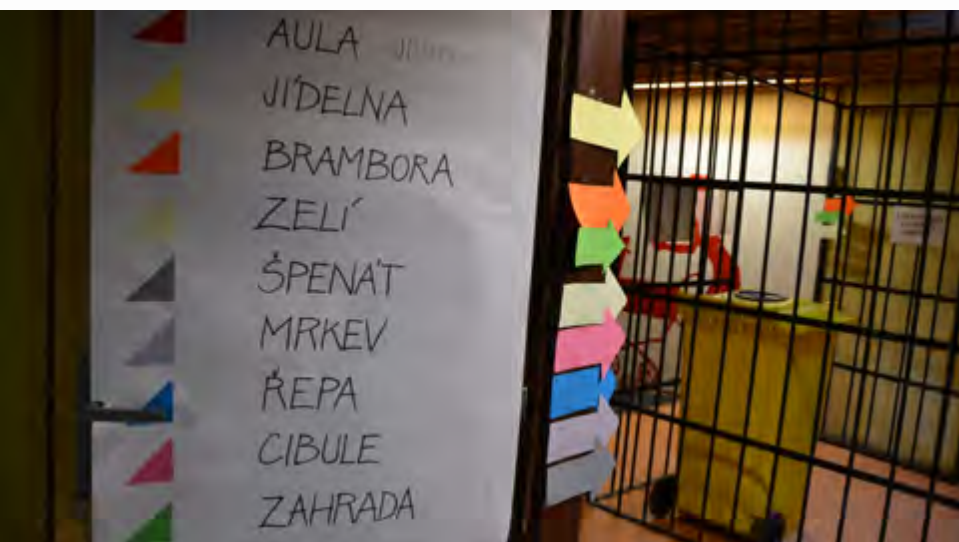 AULA
JÍDELNA
BRAMBORA
ZELÍ
ŠPENÁT
MRKEV
ŘEPA
CIBULE
ZAHRADA